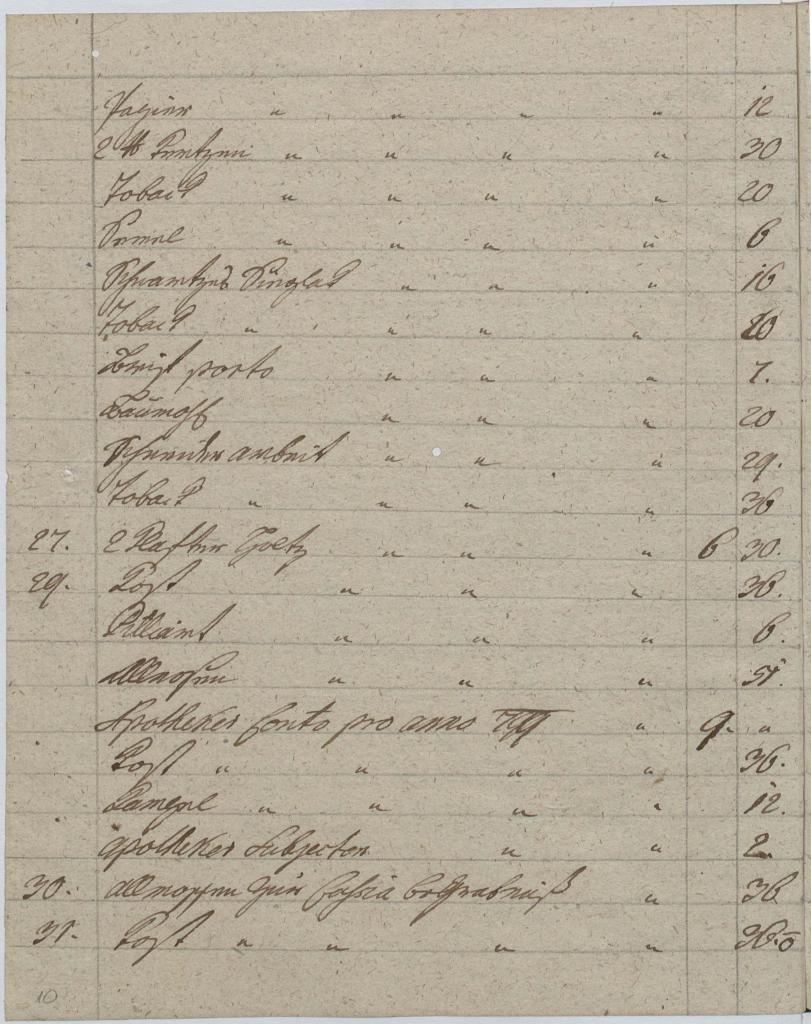 Papier " " " " 12
2 ℔ Kertzen " " " " 30
Toback " " " " 20
Semel " " " " 6
Schwartzes Sieglak " " " 16
Toback " " " " 20
Brief porto " " " 7.
Baumöhl " " " 20
Schneider arbeit " " " 29.
Toback " " " " 36
27. 2 Klafter Holtz " " " 6 30.
29. Kost " " " 36.
" " " 6.
Allmosen " " " 51.
Apotheker Conto pro anno 799 " 9. "
Kost " " " " 36.
" " " " 12.
apotheker Subjecten " " 2
30. Allmosen zur begräbniß " 36
31. Kost " " " " 36.
10